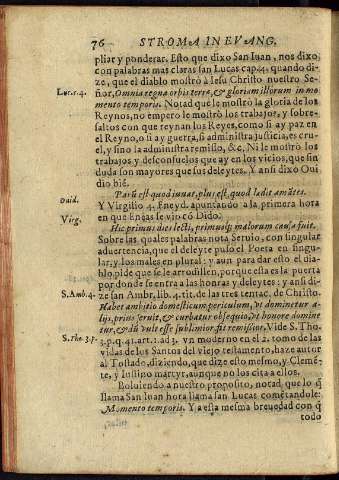 76 STROMA IN EVANG.
pliar y ponderar. Esto que dixo San Iuan, nos dixo
con palabras mas claras san Lucas cap. 4. quando di-
ze, que el diablo mostrò à Iesu Christo nuestro Se-
Luc. 4.
ñor, Omnia regna orbis terræ, & gloriam illorum in mo
mento temporis. Notad que le mostrò la gloria de los
Reynos, no empero le mostrò los trabajos, y sobre-
saltos con que reynan los Reyes, como si ay paz en
el Reyno, o si ay guerra, si administra justicia, es cru-
el, y sino la administra remisso, &c. Ni le mostrò los
trabajos y desconsuelos que ay en los vicios, que sin
duda son mayores que sus deleytes. Y ansi dixo Oui
dio biē.
Ouid.
Parū est quod iuuat, plus est, quod lædit amātes.
Virg.
Y Virgilio 4. Eneyd. apuntando a la primera hora
en que Eneas se viò cō Dido.
Hic primus dies lecti, primusq; malorum causa fuit.
Sobre las quales palabras nota Seruio, con singular
aduertencia, que el deleyte puso el Poeta en singu-
lar, y los males en plural: y aun para dar esto el dia-
blo, pide que se le arrodillen, porque esta es la puerta
por donde se entra a las honras y deleytes: y ansi di-
S. Amb. 4.
ze san Ambr. lib. 4. tit. de las tres tentac. de Christo.
Habet ambitio domesticum periculum, vt dominetur a-
lijs, prius seruit, & curbatur obsequio, vt honore domine
tur, & dū vult esse sublimior, fit remissior. Vide S. Tho.
S. Tho. 3. p.
3. p. q. 41. art. 1. ad 3. vn moderno en el 2. tomo de las
vidas de los Santos del viejo testamento, haze autor
al Tostado, diziendo, que dize esto mesmo, y Clemē-
te, y Iustino martyr, aunque no los cita a ellos.
Boluiendo a nuestro proposito, notad que lo q̄
llama San Iuan hora llama san Lucas comētandole:
Momento temporis. Y a esta mesma breuedad con q̄
todo